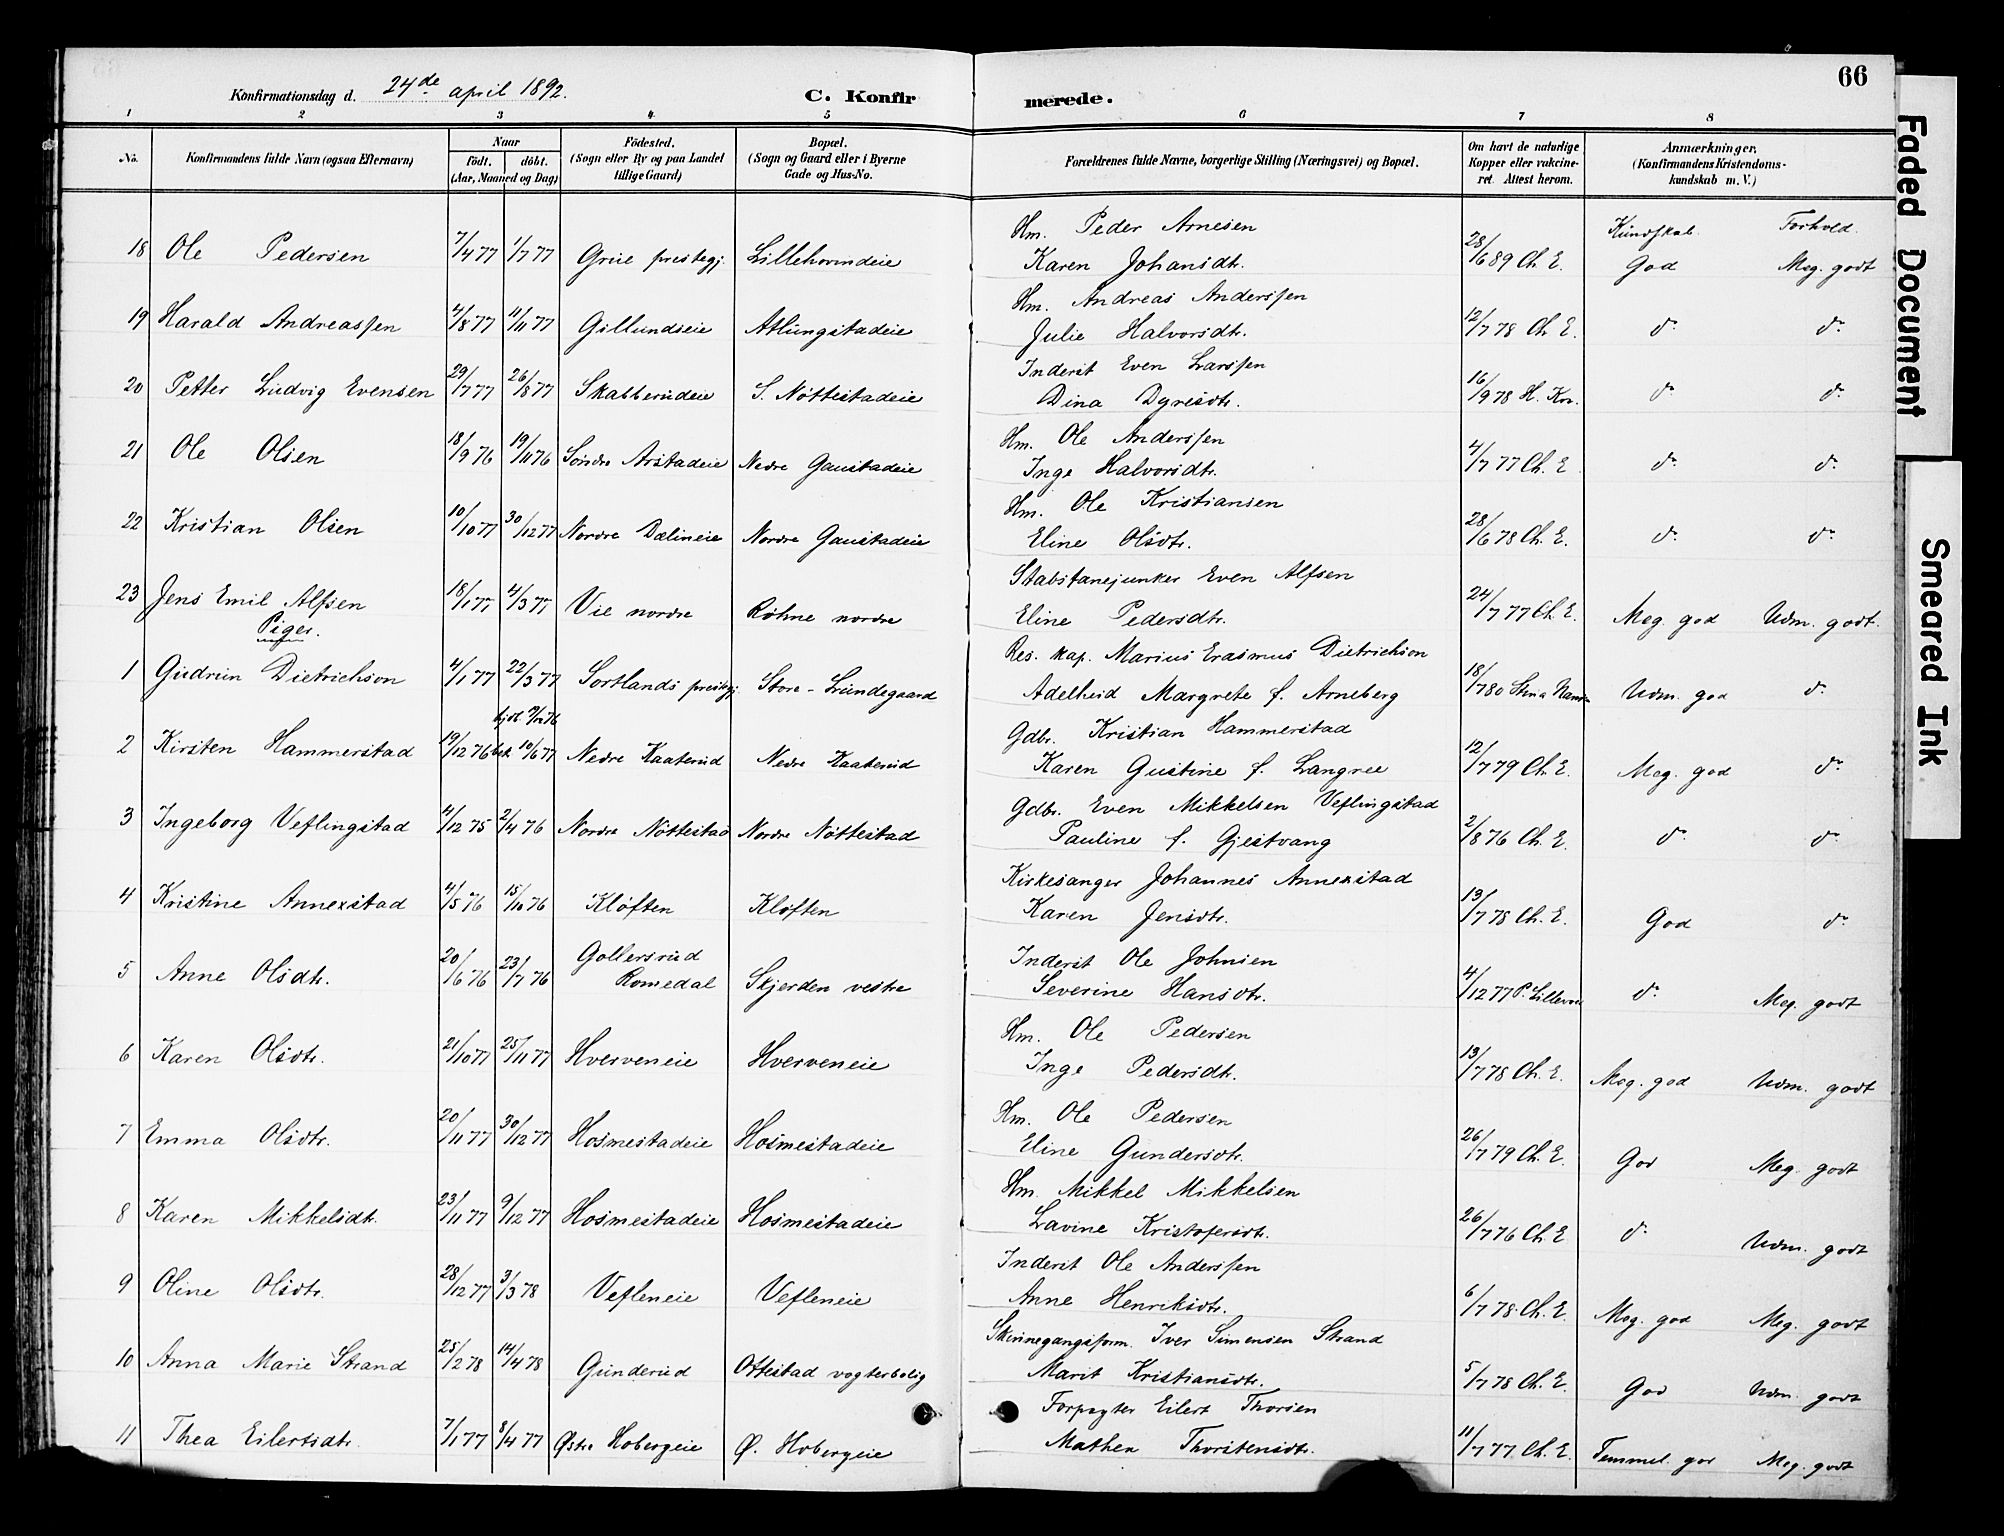 66
Konfirmationsdag d. 24de april 1892. C. Konfirmerede.
1 2 3 4 5 6 7 8
No. Konfirmandens fulde Navn (ogsaa Efternavn) Naar født. døbt. (Aar, Maaned og Dag) Fødested. (Sogn eller By og paa Landet tillige Gaard) Bopæl. (Sogn og Gaard eller i Byerne Gade og Hus-No. Forældrenes fulde Navne, borgerlige Stilling (Næringsvei) og Bopæl. Om havt de naturlige Kopper eller vakcineret. Attest herom. Anmærkninger, (Konfirmandens Kristendomskundskab m. V.)
Hm. Peder Arnesen Kundskab. Forhold.
18 Ole Pedersen 7/4 77 1/7 77 Grue prestegj. Lillehovindeie Karen Johansdtr. 28/6 89 Ch. E. God Meg. godt
Hm. Andreas Anderssen
19 Harald Andreassen 4/8 77 11/11 77 Gillundseie Atlungstadeie Julie Halvorsdtr. 12/7 78 Ch. E. do do
Inderst Even Larssen
20 Petter Ludvig Evensen 29/7 77 26/8 77 Skabberudeie S. Nøttestadeie Dina Dyresdtr. 16/9 78 H. Kr. do do
Hm. Ole Anderssen
21 Ole Olsen 18/9 76 19/11 76 Søndre Arstadeie Nedre Gaustadeie Inge Halvorsdtr. 4/7 77 Ch. E. do do
Hm. Ole Kristiansen
22 Kristian Olsen 10/10 77 30/12 77 Nordre Dælineie Nordre Gaustadeie Eline Olsdtr. 28/6 78 Ch. E. do do
Stabsfanejunker Even Alfsen
23 Jens Emil Alfsen 18/1 77 4/3 77 Vie nordre Røhne nordre Eline Pedersdtr. 24/7 77 Ch. E. Meg. god Udm. godt.
Piger.
Res. kap. Marius Erasmus Dietrichson
1 Gudrun Dietrichson 4/1 77 22/3 77 Sortlands prestegj. Store-Lundegaard Adelheid Margrete f. Arneberg 18/7 80 Udm. god do
Gdbr. Kristian Hammerstad
2 Kirsten Hammerstad 19/12 76 hjdt. 9/12 76 bek. 10/6 77 Nedre Kaaterud Nedre Kaaterud Karen Gustine f. Langree 12/7 79 Ch. E. Meg. god do
Gdbr. Even Mikkelsen Veflingstad
3 Ingeborg Veflingstad 4/12 75 2/4 76 Nordre Nøttestad Nordre Nøttestad Pauline f. Gjestvang 2/8 76 Ch. E. do do
Kirkesanger Johannes Annexstad
4 Kristine Annexstad 4/5 76 15/10 76 Kløften Kløften Karen Jensdtr. 13/7 78 Ch. E. God do
Gollersrud Inderst Ole Johnsen
5 Anne Olsdtr. 20/6 76 23/7 76 Romedal Skjerden vestre Severine Hansdtr. 4/12 77 do Meg. godt
Hm. Ole Pedersen
6 Karen Olsdtr. 21/10 77 25/11 77 Hverveneie Hverveneie Inge Pedersdtr. 13/7 78 Ch. E. Meg. god Udm. godt
Hm. Ole Pedersen
7 Emma Olsdtr. 20/11 77 30/12 77 Hosmestadeie Hosmestadeie Eline Gundersdtr. 26/7 79 Ch. E. God Meg. godt
Hm. Mikkel Mikkelsen
8 Karen Mikkelsdtr. 23/11 77 9/12 77 Hosmestadeie Hosmestadeie Lavine Kristofersdtr. 26/7 76 Ch. E. do Udm. godt
Inderst Ole Anderssen
9 Oline Olsdtr. 28/12 77 3/3 78 Vefleneie Vefleneie Anne Henriksdtr. 6/7 78 Ch. E. Meg. god Meg. godt
Skinnegangsform. Iver Simensen Strand
10 Anna Marie Strand 25/2 78 14/4 78 Gunderud Ottestad vogterbolig Marit Kristiansdtr. 5/7 78 Ch. E. God Udm. godt
Forpagter Eilert Thorsen
11 Thea Eilertsdtr. 7/1 77 8/4 77 Østre Hobergeie Ø. Hobergeie Mathea Thorstensdtr. 11/7 77 Ch. E. Temmel. god Meg. godt
Faded Document
Smeared Ink